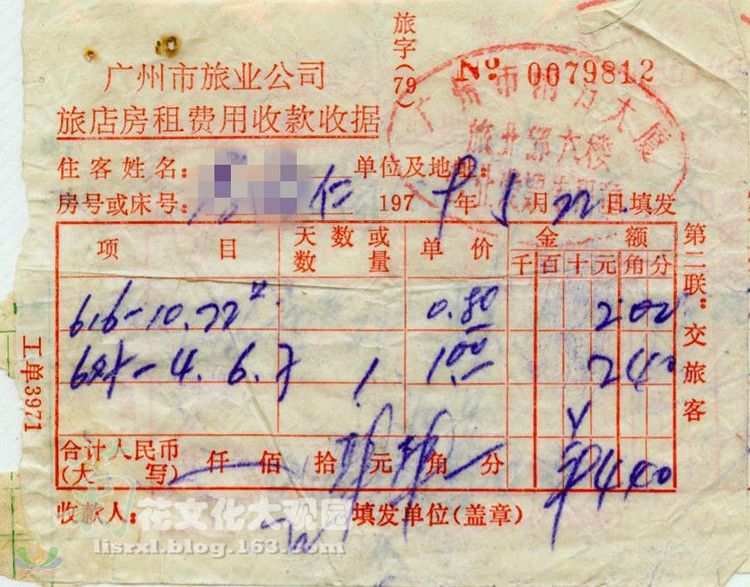 旅字(79)
№ 0079812
广州市旅业公司
旅店房租费用收款收据
广州市南方大厦
旅业部六楼
住客姓名： 单位及地址：
房号或床号： 仁 1979年5月22日填发
项目 天数 数或量 单价 金额
千百十元角分
616-10.22 0.80 2.00
1 1.00 2.40
合计人民币(大写) 仟佰拾肆元肆角分 ¥4.40
收款人： 填发单位(盖章)
第二联：交旅客
工单3971
花文化大观园
lisrxl.blog.163.com